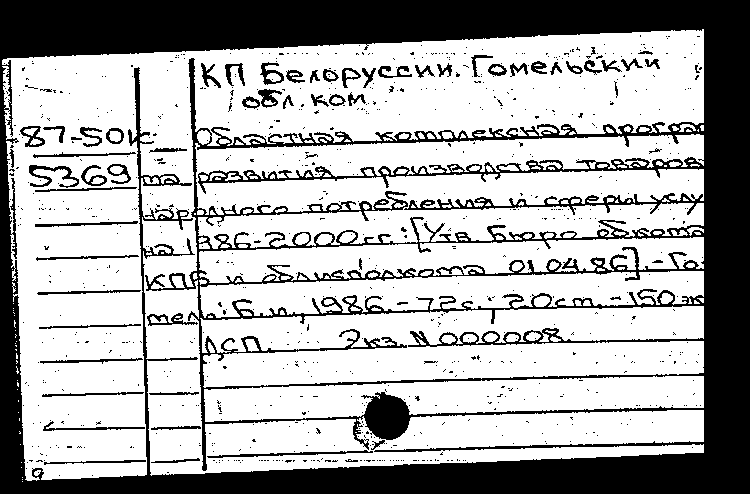 КП Белоруссии. Гомельский
обл. ком.
87-50к Областная комплексная програм
5369 ма развития производства товаров
народного потребления и сферы услу
на 1986-2000 гг.: [Утв. Бюро обкома
КПБ и облисполкома 01.04.86]. - Го-
мель: Б.и., 1986. - 72 с.; 20 см. - 150 эк
ДСП. Экз. N 000008.
9